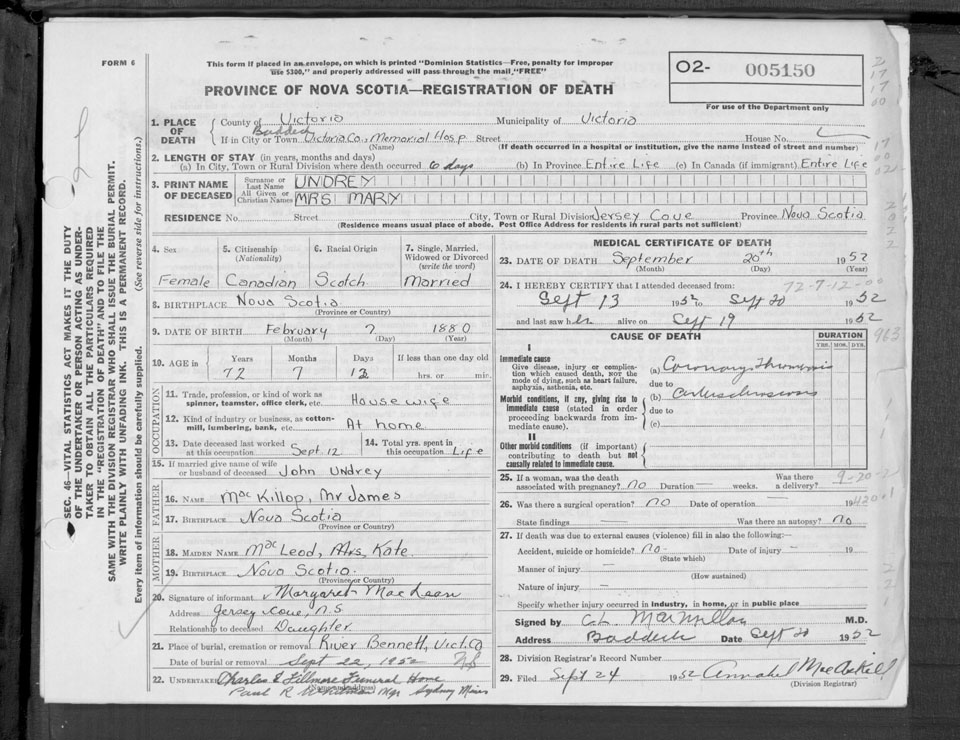 FORM 6
This form if placed in an envelope, on which is printed "Dominion Statistics—Free, penalty for improper
use $300," and properly addressed will pass through the mail "FREE"
O2- 005150
For use of the Department only
PROVINCE OF NOVA SCOTIA—REGISTRATION OF DEATH
SEC. 46—VITAL STATISTICS ACT MAKES IT THE DUTY
OF THE UNDERTAKER OR PERSON ACTING AS UNDER-
TAKER TO OBTAIN ALL THE PARTICULARS REQUIRED
IN THE "REGISTRATION OF DEATH" AND TO FILE THE
SAME WITH THE DIVISION REGISTRAR WHO SHALL ISSUE THE BURIAL PERMIT.
WRITE PLAINLY WITH UNFADING INK. THIS IS A PERMANENT RECORD.
Every item of information should be carefully supplied. (See reverse side for instructions.)
1. PLACE OF DEATH
County of Victoria Municipality of Victoria
Baddeck
If in City or Town Victoria Co., Memorial Hosp Street House No.
(Name) (If death occurred in a hospital or institution, give the name instead of street and number)
2. LENGTH OF STAY (in years, months and days)
(a) In City, Town or Rural Division where death occurred 6 days (b) In Province Entire Life (c) In Canada (if immigrant) Entire Life
3. PRINT NAME OF DECEASED
Surname or Last Name UNDREY
All Given or Christian Names MRS MARY
RESIDENCE No. Street City, Town or Rural Division Jersey Cove Province Nova Scotia
(Residence means usual place of abode. Post Office Address for residents in rural parts not sufficient)
4. Sex 5. Citizenship (Nationality) 6. Racial Origin 7. Single, Married, Widowed or Divorced (write the word)
Female Canadian Scotch Married
8. BIRTHPLACE Nova Scotia
(Province or Country)
9. DATE OF BIRTH February 7 1880
(Month) (Day) (Year)
10. AGE in Years Months Days If less than one day old
72 7 13 hrs. or min.
OCCUPATION
11. Trade, profession, or kind of work as
spinner, teamster, office clerk, etc. Housewife
12. Kind of industry or business, as cotton-
mill, lumbering, bank, etc. At home
13. Date deceased last worked at this occupation Sept. 12 14. Total yrs. spent in this occupation Life
15. If married give name of wife
or husband of deceased John Undrey
FATHER
16. NAME MacKillop, Mr James
17. BIRTHPLACE Nova Scotia
(Province or Country)
MOTHER
18. MAIDEN NAME MacLeod, Mrs. Kate
19. BIRTHPLACE Nova Scotia.
(Province or Country)
20. Signature of informant Margaret MacLean
Address Jersey Cove, N S
Relationship to deceased Daughter
21. Place of burial, cremation or removal River Bennett, Vict. Co
Date of burial or removal Sept 22, 1952 NS
22. UNDERTAKER Charles L Fillmore Funeral Home
(Name and address)
Paul R Mgr Sydney Mines
MEDICAL CERTIFICATE OF DEATH
23. DATE OF DEATH September 20th 1952
(Month) (Day) (Year)
72-7-12-00
24. I HEREBY CERTIFY that I attended deceased from:
Sept 13 1952 to Sept 20 1952
and last saw her alive on Sept 19 1952
963
CAUSE OF DEATH DURATION
YRS. MOS. DYS.
I
Immediate cause
Give disease, injury or complica-
tion which caused death, NOT the
mode of dying, such as heart failure,
asphyxia, asthenia, etc.
(a) Coronary Thrombosis
due to
Morbid conditions, if any, giving rise to
immediate cause (stated in order
proceeding backwards from im-
mediate cause).
(b) Arteriosclerosis
due to
(c)
II
Other morbid conditions (if important)
contributing to death but not
causally related to immediate cause.
25. If a woman, was the death associated with pregnancy? no Duration — weeks. Was there a delivery?
9-20-
26. Was there a surgical operation? no Date of operation — 19
420.1
State findings — Was there an autopsy? no
27. If death was due to external causes (violence) fill in also the following:—
Accident, suicide or homicide? no Date of injury — 19
(State which)
Manner of injury —
(How sustained)
Nature of injury —
Specify whether injury occurred in industry, in home, or in public place
Signed by C.L. MacMillan M.D.
Address Baddeck Date Sept 20 1952
28. Division Registrar's Record Number
29. Filed Sept 24 1952 Annabel MacAskill
(Division Registrar)